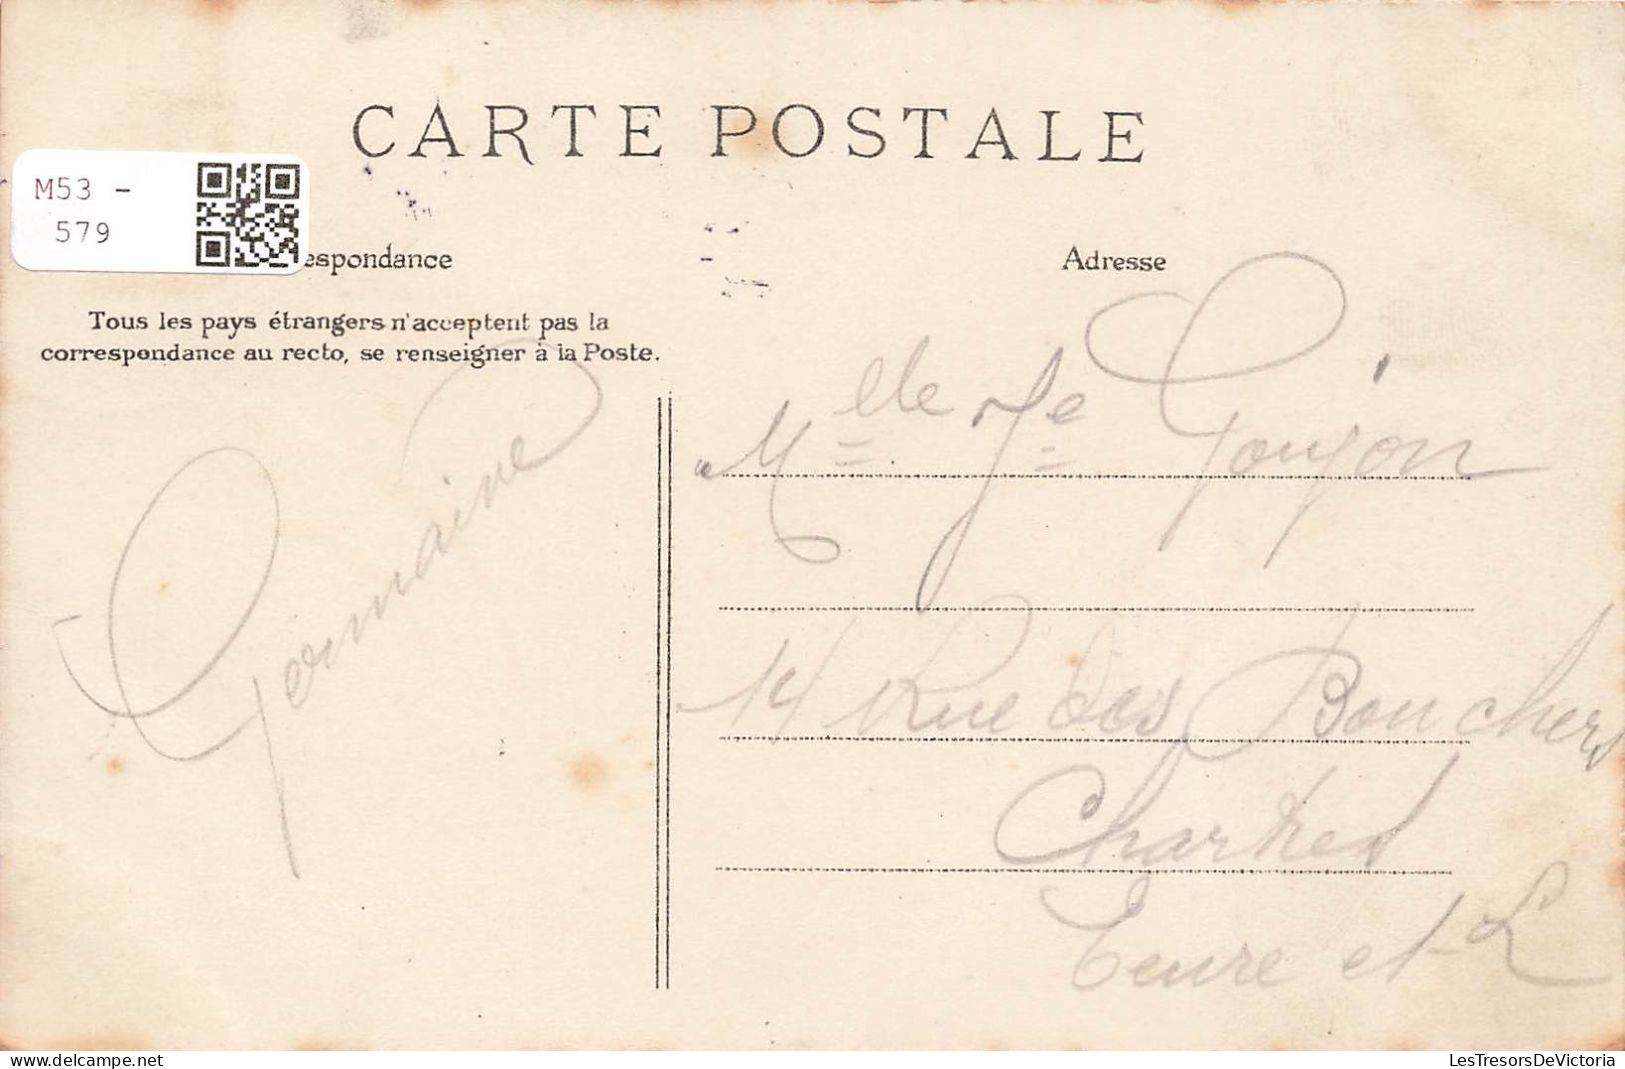 CARTE POSTALE
M53 -
579
espondance
Adresse
Tous les pays étrangers n'acceptent pas la
correspondance au recto, se renseigner à la Poste.
Germaine
Mlle Je Goujon
14 Rue des Bouchers
Chartres
Eeure et L
delcampe.net
LesTresorsDeVictoria